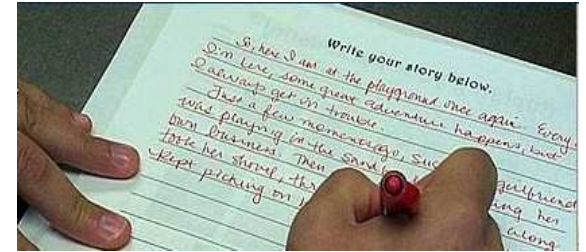 Write your story below.
So, here I am at the playground once again. Every
I'm here, some great adventure happens, but
I always get in trouble.
Just a few moments ago, girlfriend
was playing in the sand her
own business. Then along
took her shovel,
kept picking on